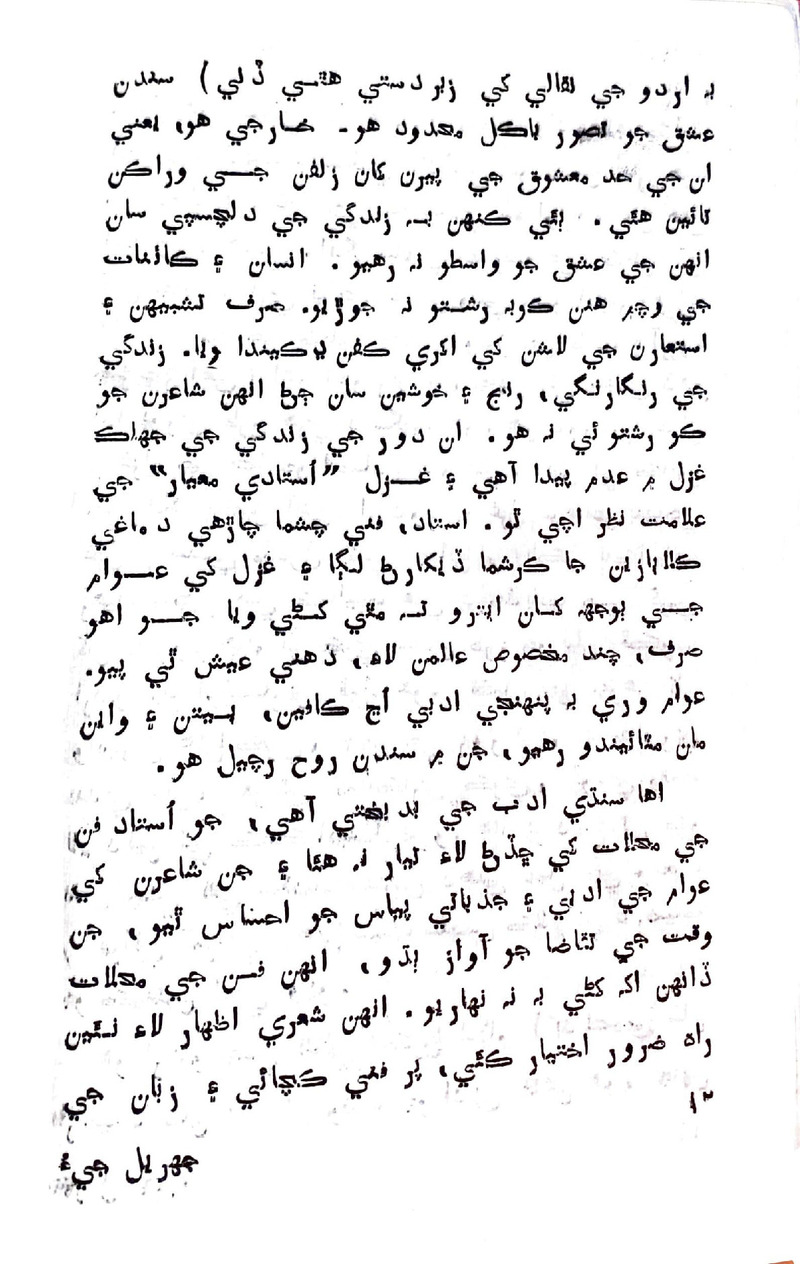 به اردو جي نقالي کي زبردستي هٿي ڏني) سندن
عشق جو تصور بلڪل محدود هو۔ خارجي هو، يعني
ان جي حد معشوق جي پيرن کان زلفن جي وراڪن
تائين هئي. ٻئي ڪنهن به زندگي جي دلچسپي سان
انهن جي عشق جو واسطو نه رهيو. انسان ۽ ڪائنات
جي وچ ۾ هنن ڪوبہ رشتو نه جوڙيو. صرف تشبيهن ۽
استعارن جي لاشن کي اڪري ڪفن ڍڪيندا ويا. زندگي
جي رنگارنگي، رنج ۽ خوشين سان ڄڻ انهن شاعرن جو
ڪو رشتو ئي نه هو. ان دور جي زندگي جي جهلڪ
غزل ۾ عدم پيدا آهي ۽ غزل ”اُستادي معيار“ جي
علامت نظر اچي ٿو. استاد، فني چشما چاڙهي دماغي
ڪلابازين جا ڪرشما ڏيکارڻ لڳا ۽ غزل کي عوام
جي ٻوجهه کان ايترو تہ مٿي کڻي ويا جو اهو
صرف، چند مخصوص عالمن لاءِ، ذهني عيش ٿي پيو.
عوام وري به پنهنجي ادبي اُڃ ڪافين، بيتن ۽ واين
مان مٽائيندو رهيو، جن ۾ سندن روح رچيل هو.
اها سنڌي ادب جي بدبختي آهي، جو اُستاد فن
جي محلات کي ڇڏڻ لاءِ تيار نه هئا ۽ جن شاعرن کي
عوام جي ادبي ۽ جذباتي پياس جو احساس ٿيو، جن
وقت جي تقاضا جو آواز ٻڌو، انهن فن جي محلات
ڏانهن اک کڻي به نه نهاريو. انهن شعري اظهار لاءِ نئين
راه ضرور اختيار ڪئي، پر فني ڪچائي ۽ زبان جي
۱۲
جهريل جيءُ